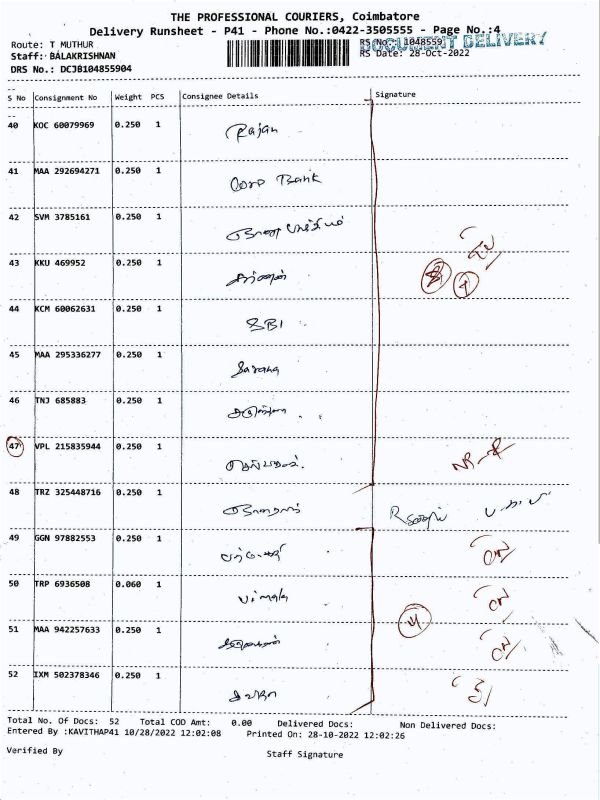 THE PROFESSIONAL COURIERS, Coimbatore
Delivery Runsheet - P41 - Phone No.:0422-3505555 - Page No.:4
Route: T MUTHUR
RS No.: 1048559
DOCUMENT DELIVERY
Staff: BALAKRISHNAN
RS Date: 28-Oct-2022
DRS No.: DCJB104855904
S No Consignment No Weight PCS Consignee Details Signature
40 KOC 60079969 0.250 1 Rajan
41 MAA 292694271 0.250 1 Corp Bank
42 SVM 3785161 0.250 1
43 KKU 469952 0.250 1
44 KCM 60062631 0.250 1 SBI
45 MAA 295336277 0.250 1 Sarana
46 TNJ 685883 0.250 1
47 VPL 215835944 0.250 1
48 TRZ 325448716 0.250 1
49 GGN 97882553 0.250 1
50 TRP 6936508 0.060 1 Vimala
51 MAA 942257633 0.250 1
52 IXM 502378346 0.250 1
Total No. Of Docs: 52 Total COD Amt: 0.00 Delivered Docs: Non Delivered Docs:
Entered By :KAVITHAP41 10/28/2022 12:02:08 Printed On: 28-10-2022 12:02:26
Verified By Staff Signature